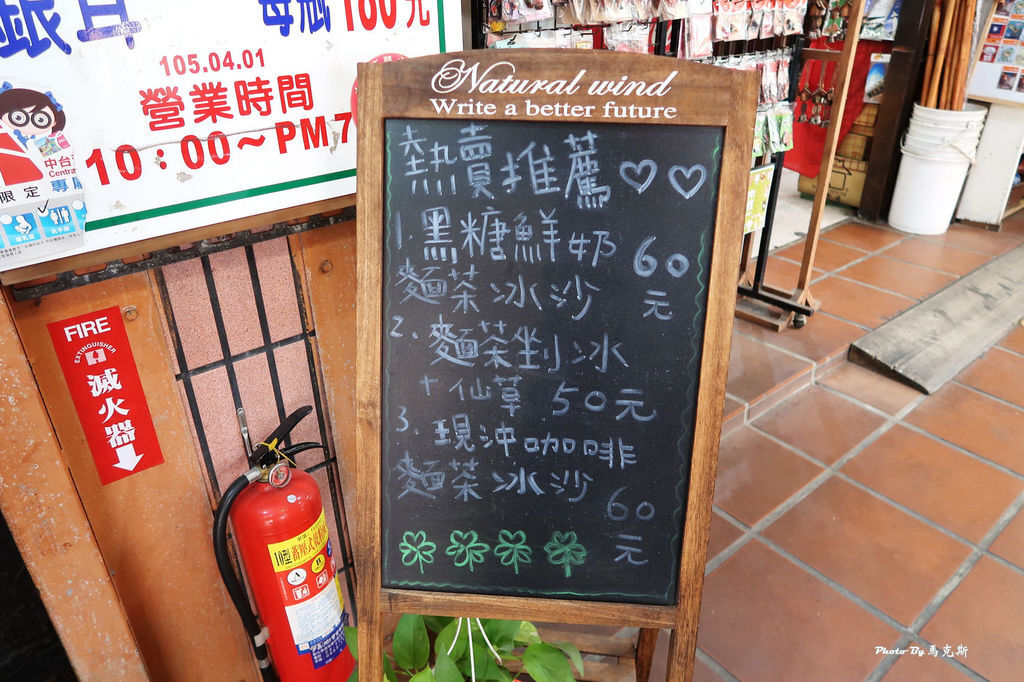 每瓶180元
105.04.01
營業時間
10：00～PM7
限定
中台
Centra
專屬
FIRE
EXTINGUISHER
滅火器
10型
A
B
Natural wind
Write a better future
熱賣推薦♡♡
1.黑糖鮮奶
麵茶冰沙
60
元
2.麵茶剉冰
+仙草 50元
3.現沖咖啡
麵茶冰沙
60
元
Photo By 馬克斯